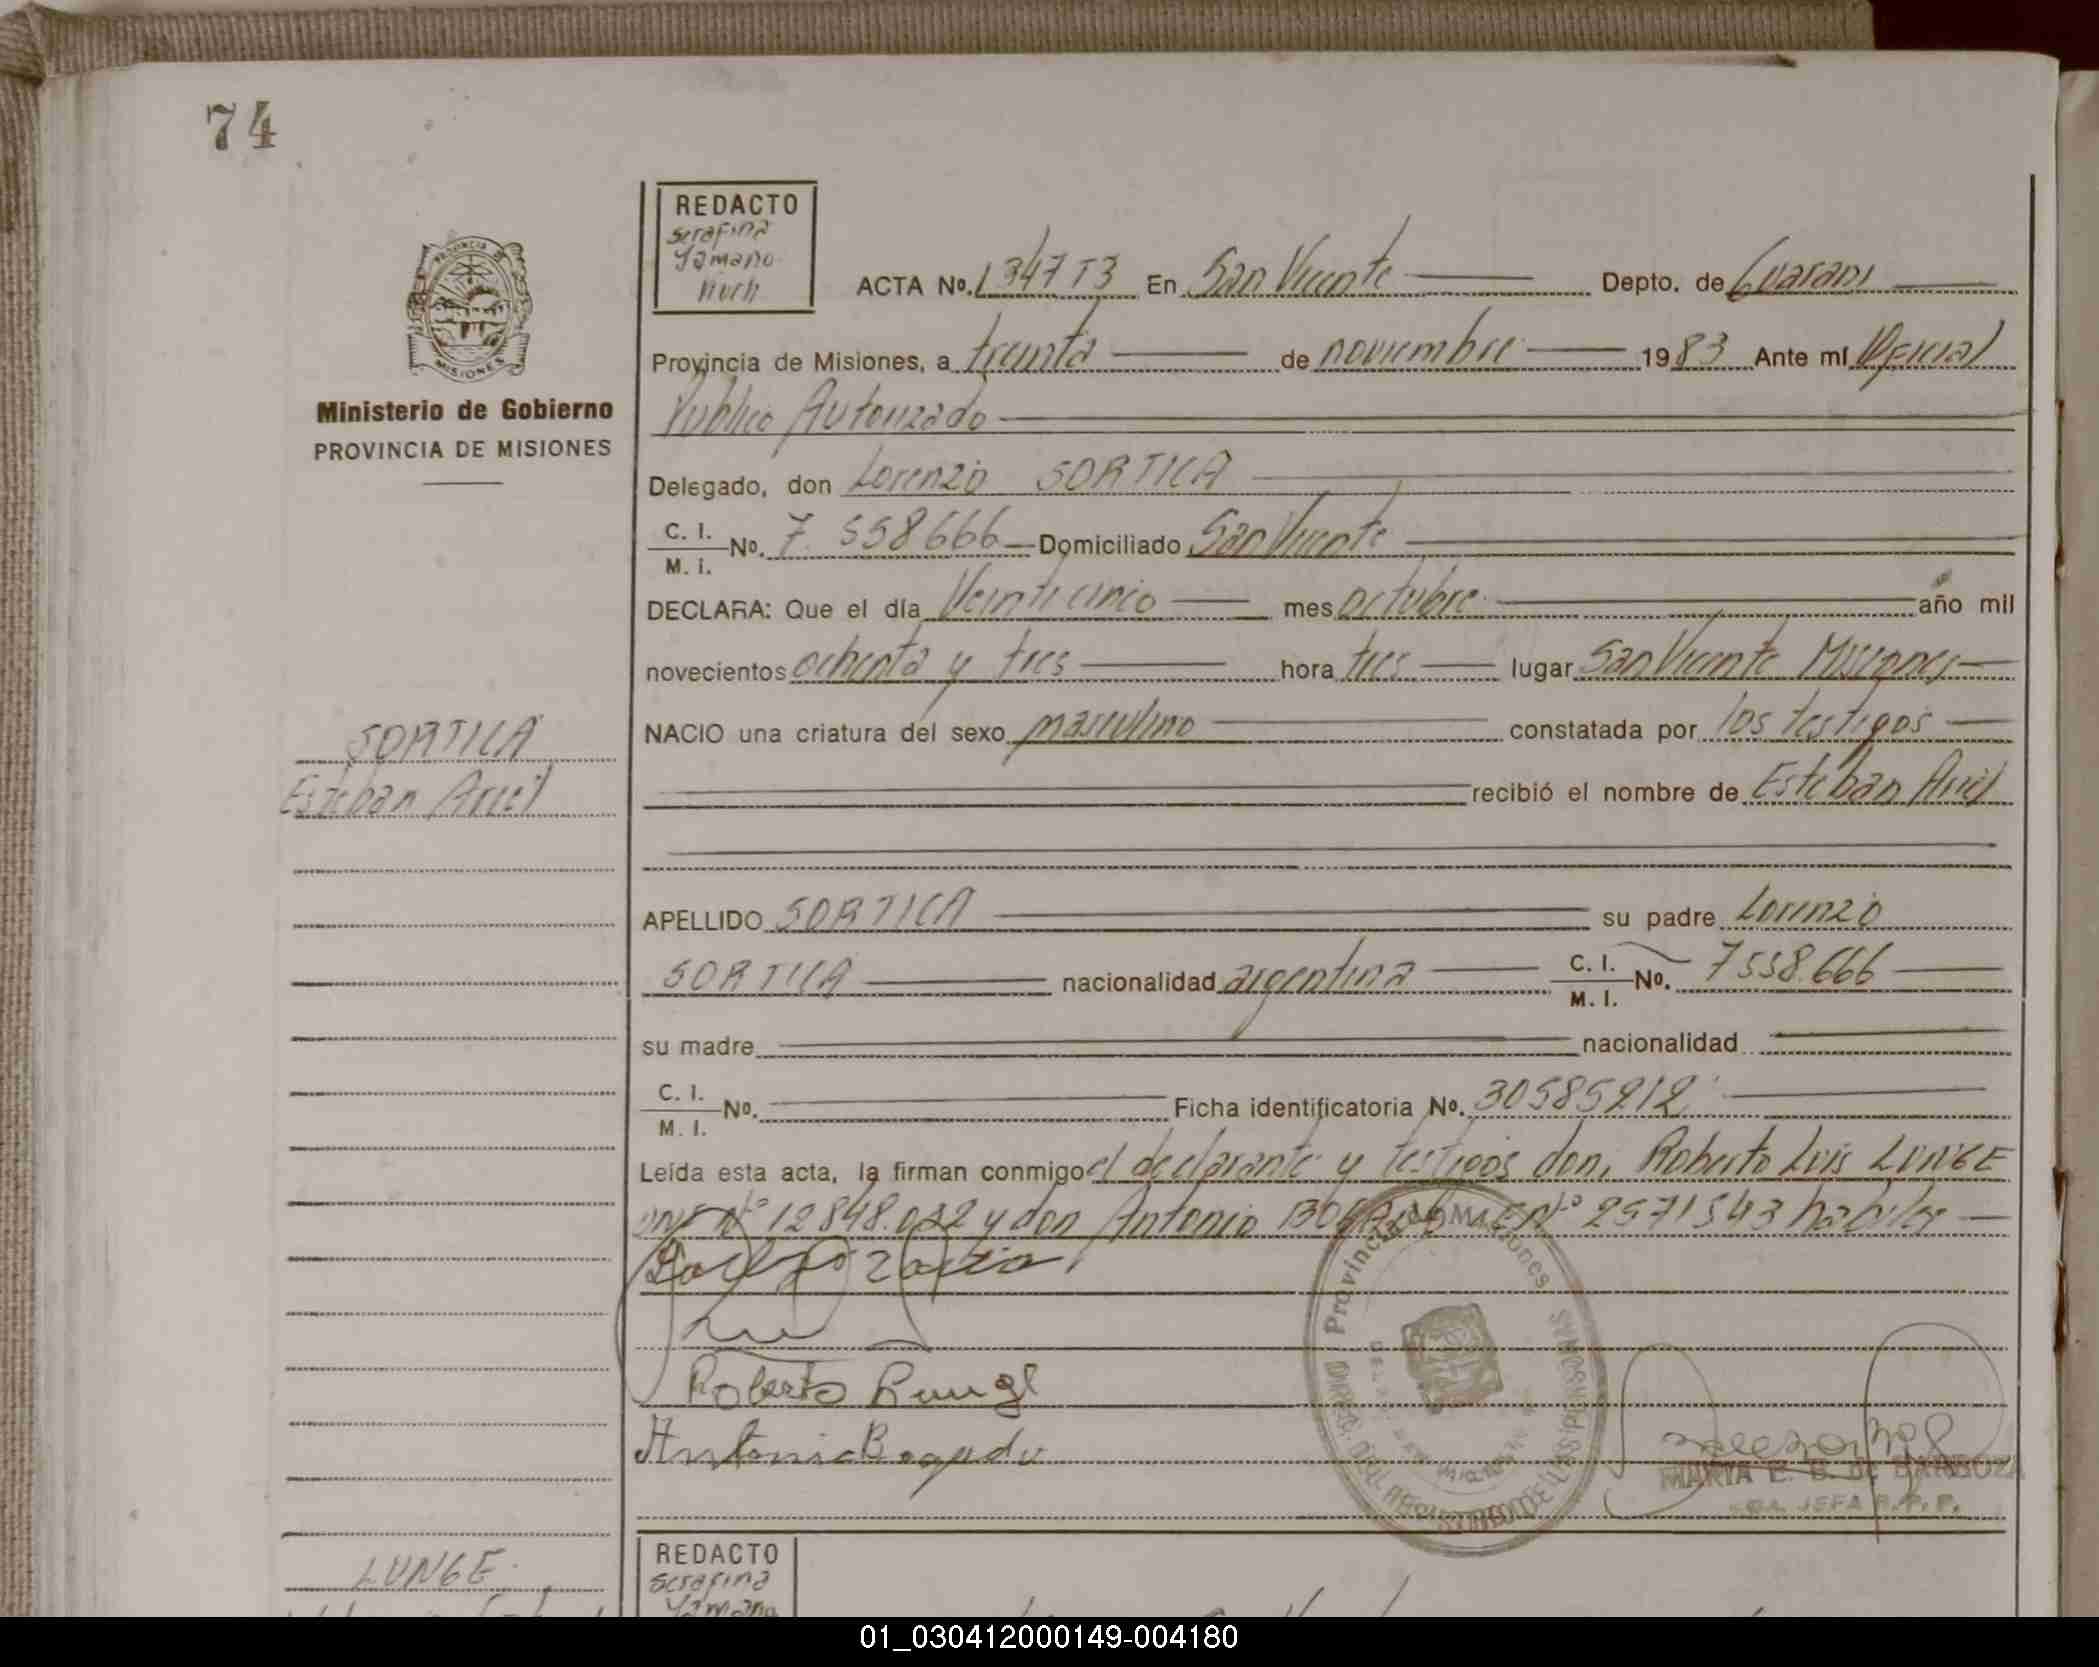 74
REDACTO
Serafina
Yamano
PROVINCIA DE
MISIONES
Ministerio de Gobierno
PROVINCIA DE MISIONES
ACTA No. 1347 T3 En San Vicente Depto. de Guarani
Provincia de Misiones, a treinta de noviembre 1983 Ante mí Oficial
Publico Autorizado
Delegado, don Lorenzo SORTICA
C. I.
M. I. No. 7.558666 Domiciliado San Vicente
DECLARA: Que el día Veinticinco mes octubre año mil
novecientos ochenta y tres hora tres lugar San Vicente Misiones
NACIO una criatura del sexo masculino constatada por los testigos
recibió el nombre de Esteban Ariel
SORTICA
Esteban Ariel
APELLIDO SORTICA su padre Lorenzo
SORTICA nacionalidad argentina C. I. M. I. No. 7558.666
su madre nacionalidad
C. I.
M. I. No. Ficha identificatoria No. 30585212
Leída esta acta, la firman conmigo el declarante y testigos don, Roberto Luis LUNGE
DNI Nº 12848.022 y don Antonio Nº 2571543 habiles
Roberto Lunge
Antonio Bogado
Provincia de Misiones
MARIA E. B. de BARBOZA
JEFA R.P.P.
LUNGE
REDACTO
Serafina
Yamano
01_030412000149-004180